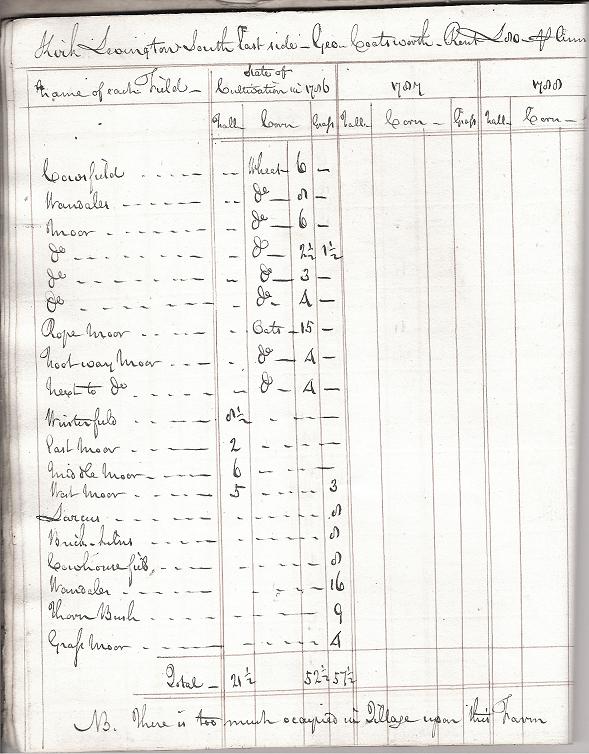 Kirk Levington South East side - Geo. Coatsworth - Rent £80 - p Ann
Name of each Field - State of Cultivation in 1786 1787 1788
Fall. Corn Grass Fall. Corn - Grass Fall. Corn -
- - - - - - Wheat - 6 -
Wandales - - - - - - Do - 8 -
Moor - - - - - - Do - 6 -
Do - - - - - - Do - 2½ 1½
Do - - - - - - Do - 3 -
Do - - - - - - Do - 4 -
Rope Moor - - - - - Oats - 15 -
Footway Moor - - - - Do - 4 -
Next to Do - - - - - Do - 4 -
Winterfield - - - - 8½ - - - -
East Moor - - - - 2 - - - -
Middle Moor - - - - 6 - - - -
West Moor - - - - 5 - - - - 3
Sarcus - - - - - - - - 8
Brick-kilns - - - - - - - 8
Cowhouse field - - - - - - - 8
Wandales - - - - - - - 16
Thorn Bush - - - - - - - 9
Grass Moor - - - - - - - 4
Total - 21½ 52½ 57½
NB. There is too much occupied in Tillage upon this Farm